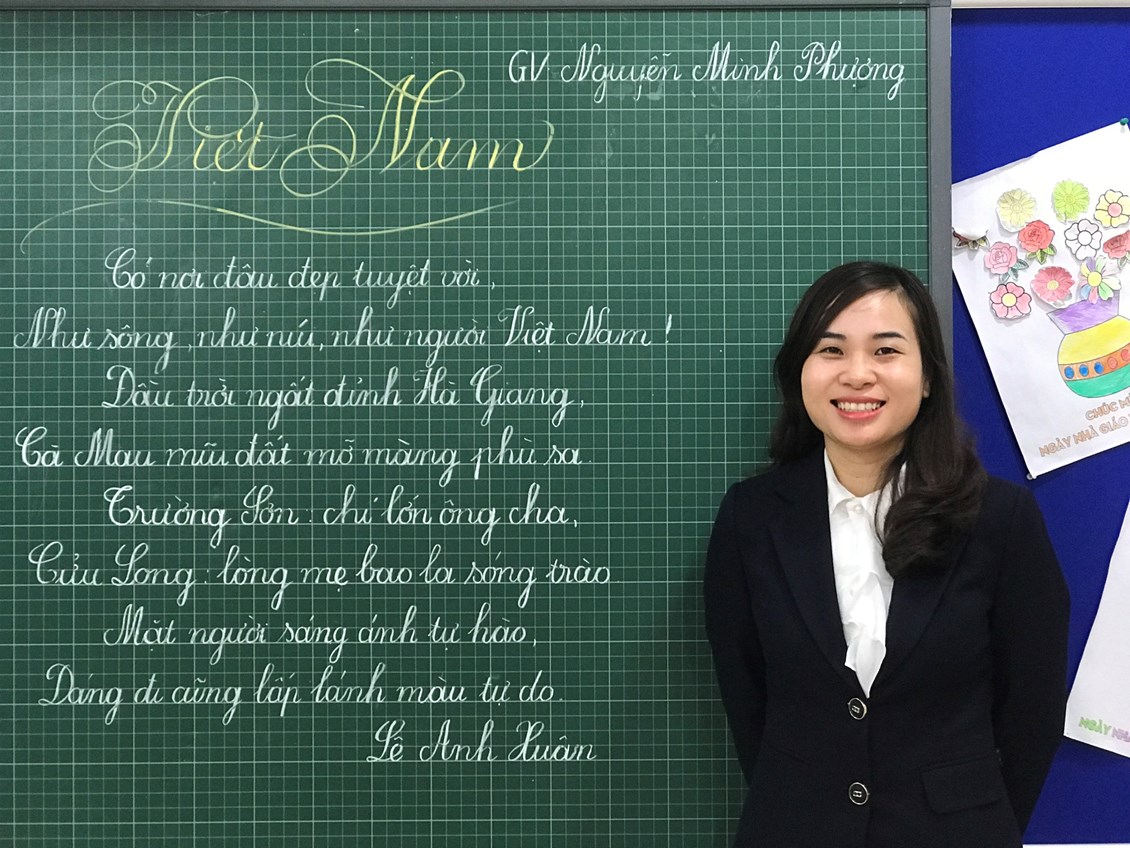 GV Nguyễn Minh Phượng
Việt Nam
Có nơi đâu đẹp tuyệt vời,
Như sông, như núi, như người Việt Nam!
Dầu trời ngất đỉnh Hà Giang,
Cà Mau mũi đất mỡ màng phù sa.
Trường Sơn: chí lớn ông cha,
Cửu Long: lòng mẹ bao la sóng trào.
Mặt người sáng ánh tự hào,
Dáng đi cũng lấp lánh màu tự do.
Lê Anh Xuân
CHÚC M
NGÀY NHÀ GIÁO
NGÀY NHÀ